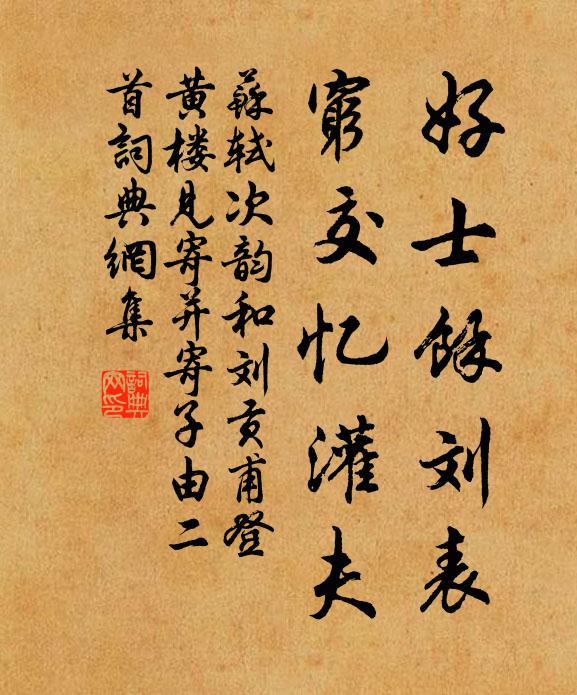 好士餘刘表
窮交忆灌夫
蘇轼次韵和刘贡甫登
黄楼见寄并寄子由二
首詞典網集
詞典
网印